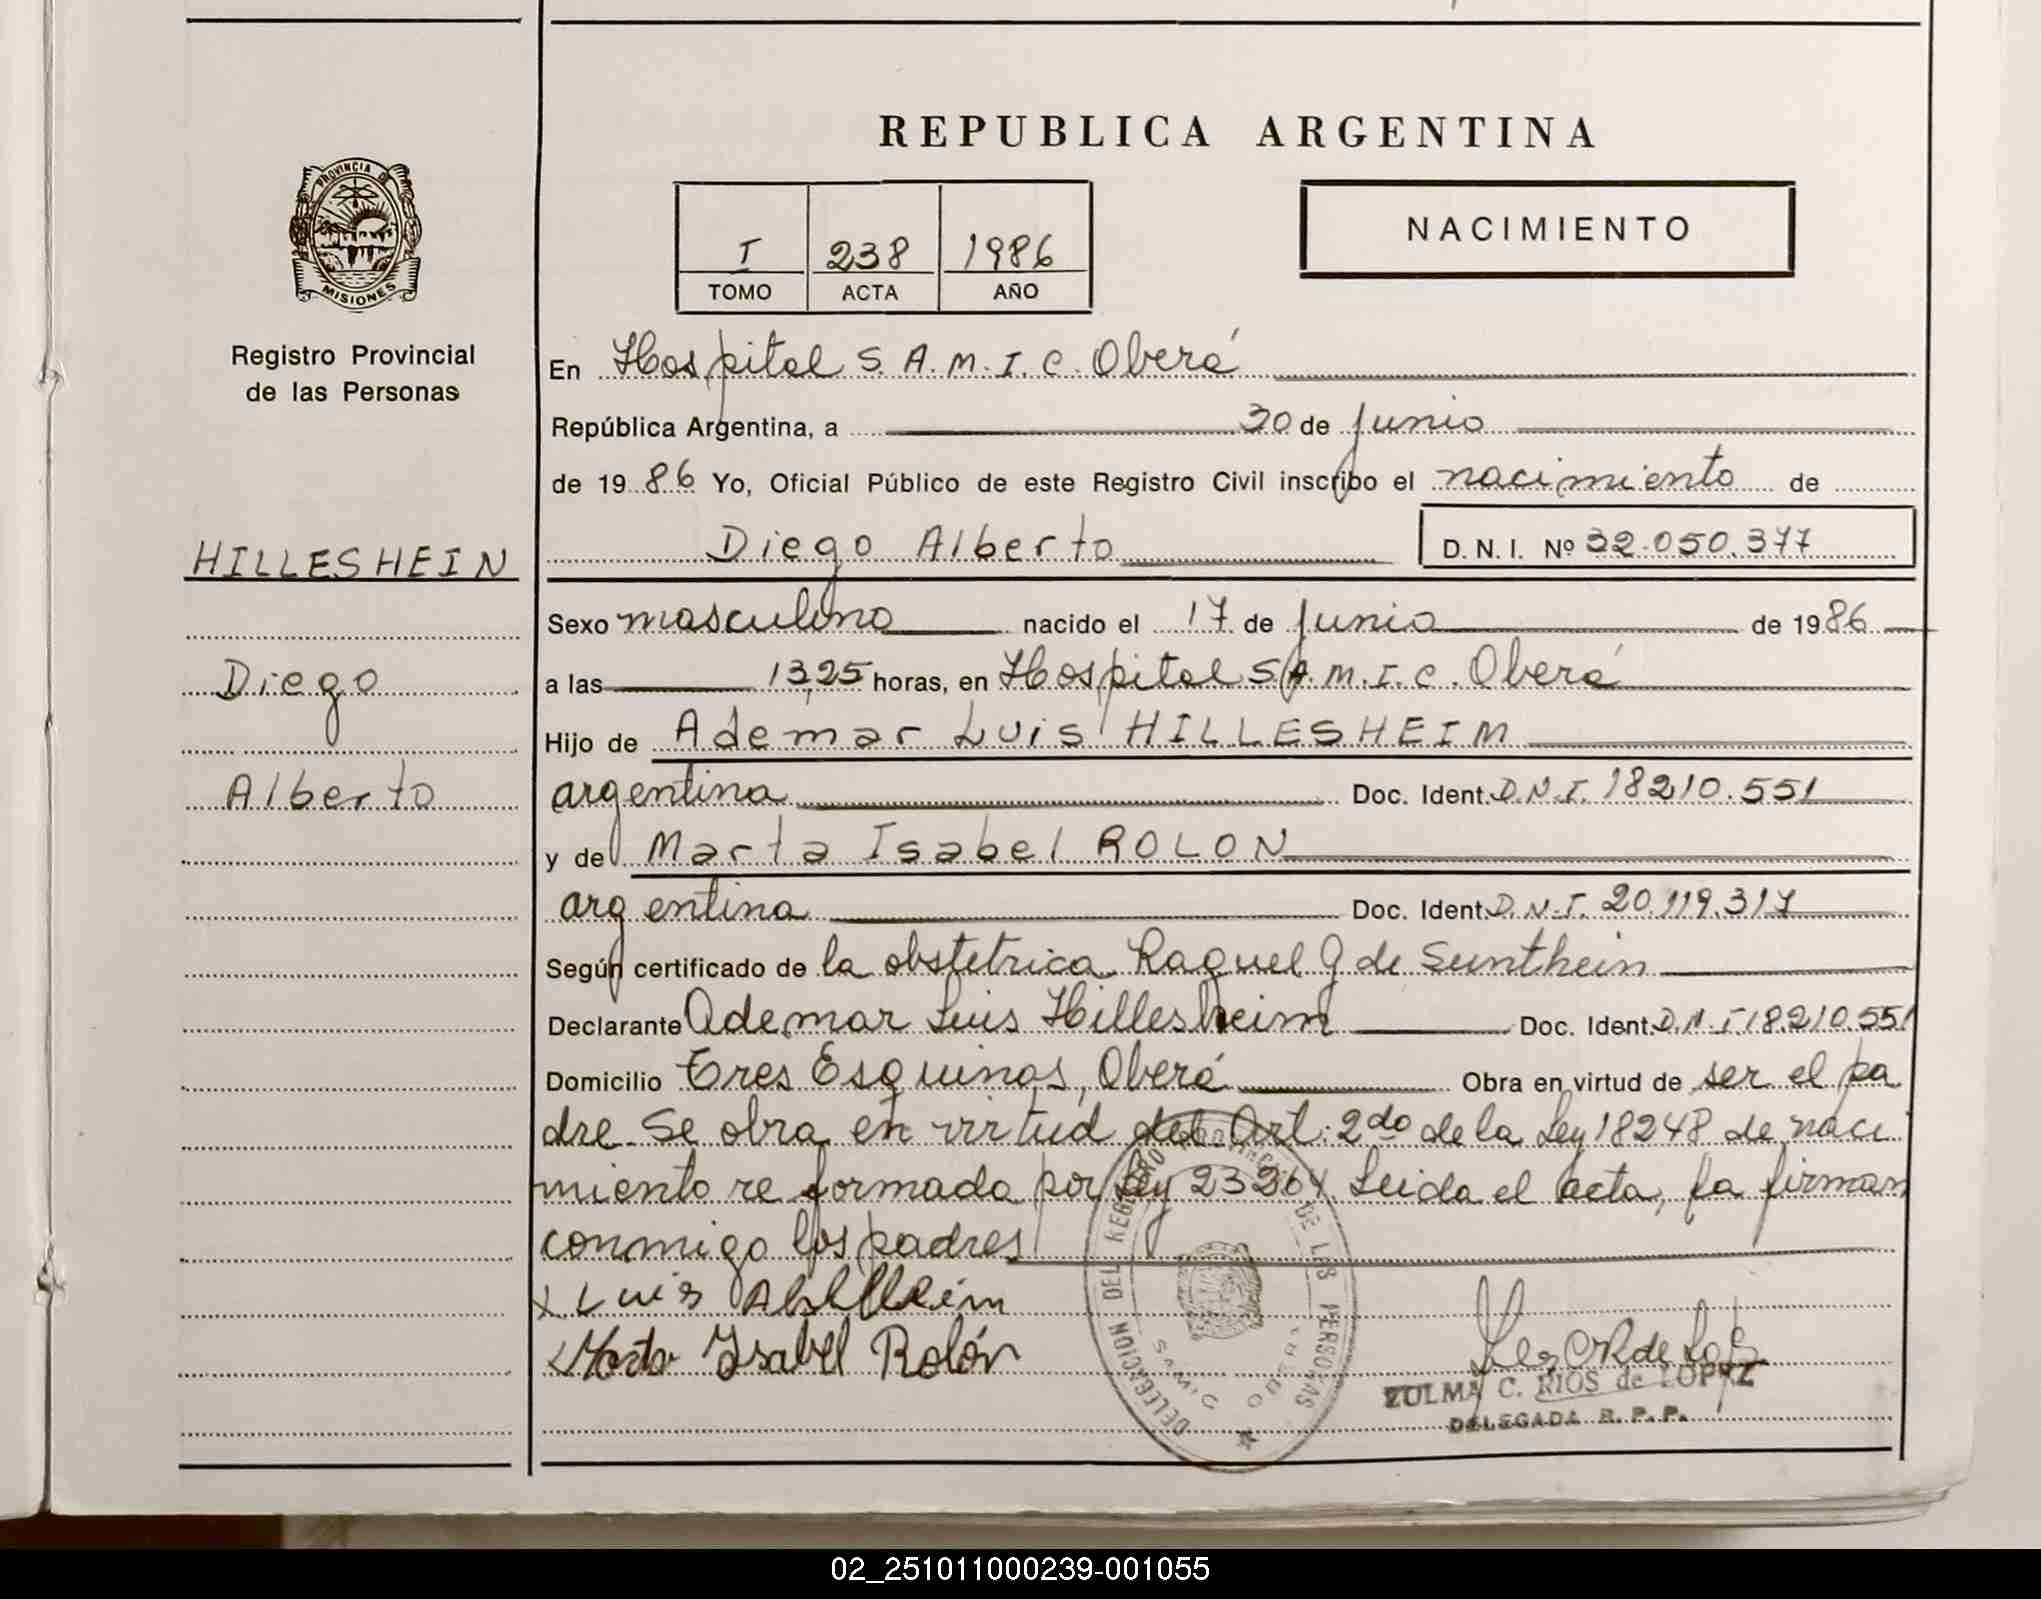 REPUBLICA ARGENTINA
PROVINCIA DE
MISIONES
I 238 1986
TOMO ACTA AÑO
NACIMIENTO
Registro Provincial
de las Personas
En Hospital S.A.M.I.C. Oberá
República Argentina, a 30 de junio
de 1986 Yo, Oficial Público de este Registro Civil inscribo el nacimiento de
HILLESHEIN
Diego Alberto D.N.I. Nº 32.050.377
Sexo masculino nacido el 17 de junio de 1986
Diego
a las 13,25 horas, en Hospital S.A.M.I.C. Oberá
Hijo de Ademar Luis HILLESHEIM
Alberto
argentina Doc. Ident. D.N.I. 18210.551
y de Marta Isabel ROLON
argentina Doc. Ident. D.N.I. 20.119.317
Según certificado de la obstetrica Raquel G de Sunthein
Declarante Ademar Luis Hillesheim Doc. Ident. D.N.I 18.210.551
Domicilio Tres Esquinas, Oberá Obra en virtud de ser el pa
dre. Se obra en virtud del Art. 2do de la Ley 18248 de naci
miento re formada por Ley 23264 Leida el acta, la firman
conmigo los padres
x Luis
Marta Isabel Rolón
DELEGACION DEL REGISTRO PROVINCIAL DE LAS PERSONAS
SAMIC OBERA
ZULMA C. RIOS de LOPEZ
DELEGADA R.P.P.
02_251011000239-001055